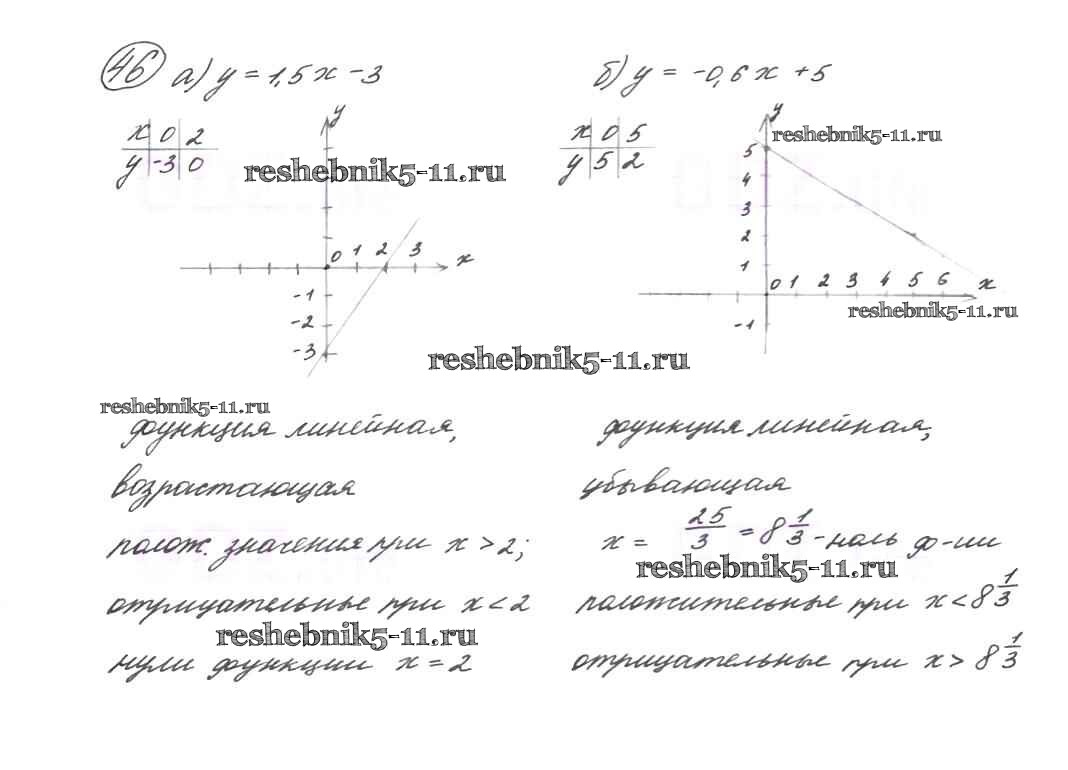 46 а) y = 1,5x - 3
x 0 2
y -3 0
reshebnik5-11.ru
y
0 1 2 3 x
-1
-2
-3
reshebnik5-11.ru
reshebnik5-11.ru
функция линейная,
возрастающая
полож. значения при x > 2;
отрицательные при x < 2
reshebnik5-11.ru
нули функции x = 2
б) y = -0,6x + 5
x 0 5
y 5 2
y
reshebnik5-11.ru
5
4
3
2
1
0 1 2 3 4 5 6 x
reshebnik5-11.ru
-1
функция линейная,
убывающая
x = 25/3 = 8 1/3 - ноль ф-ии
reshebnik5-11.ru
положительные при x < 8 1/3
отрицательные при x > 8 1/3